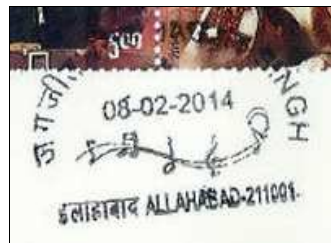 500
जगजी
NGH
08-02-2014
इलाहाबाद ALLAHABAD-211001.